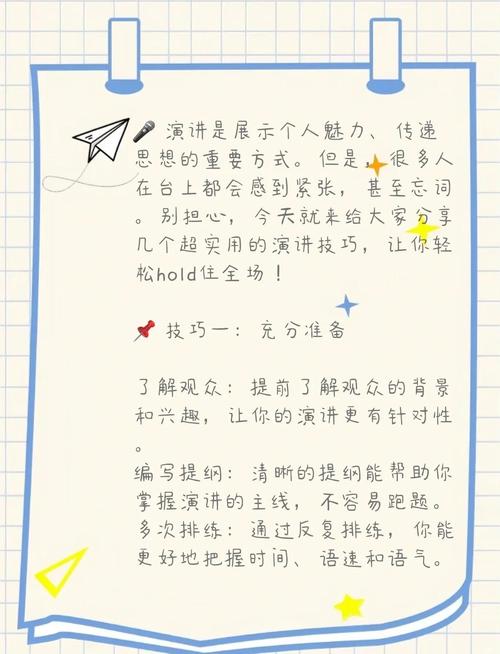 🎤 演讲是展示个人魅力、传递
思想的重要方式。但是，很多人
在台上都会感到紧张，甚至忘词
。别担心，今天就来给大家分享
几个超实用的演讲技巧，让你轻
松hold住全场！
📌 技巧一：充分准备
了解观众：提前了解观众的背景
和兴趣，让你的演讲更有针对性
。
编写提纲：清晰的提纲能帮助你
掌握演讲的主线，不容易跑题。
多次排练：通过反复排练，你能
更好地把握时间、语速和语气。